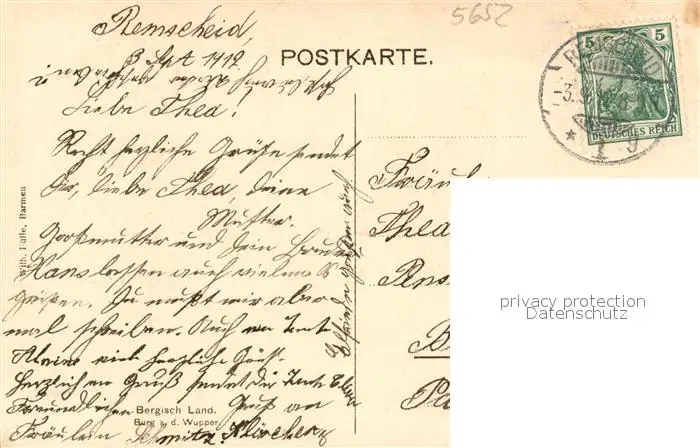 5652
Remscheid,
3 Sept 1912
POSTKARTE.
Liebe Thea!
Recht herzliche Grüße sendet
Dir, liebe Thea, deine
Mutter.
Großmutter und dein Bruder
Hans lassen auch vielmals
grüßen. Du mußt mir aber
mal schreiben. Auch von Tante
viele herzliche Grüße.
Herzlichen Gruß sendet dir Tante
Freundlichen Gruß an
Fräulein Schmitz
Wilh. Fülle, Barmen
Bergisch Land.
Burg a. d. Wupper.
5 5
DEUTSCHES REICH
Fräul
Thea
Pens
privacy protection
Datenschutz